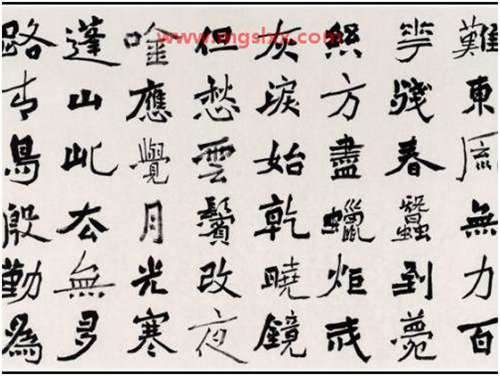 難東風無力百
花殘春蠶到死
絲方盡蠟炬成
灰淚始乾曉鏡
但愁雲鬢改夜
唫應覺月光寒
蓬山此去無多
路青鳥殷勤為